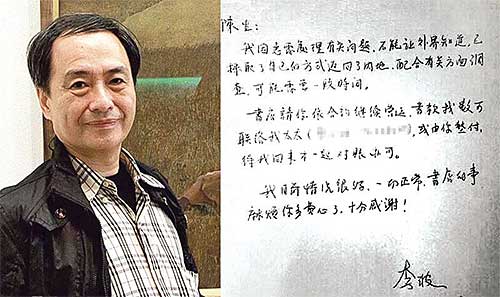 陳生：
我因急需處理有关問題，不能让外界知道，已
採取了自己的方式返回了内地，配合有关方面调
查，可能需要一段時间。
書店請你依合約继续营运，書款我数可
联络我太太（
），或由你墊付，
待我回来才一起对账亦可。
我目前情况很好，一切正常，書店的事
麻烦你多費心了，十分感謝！
李波